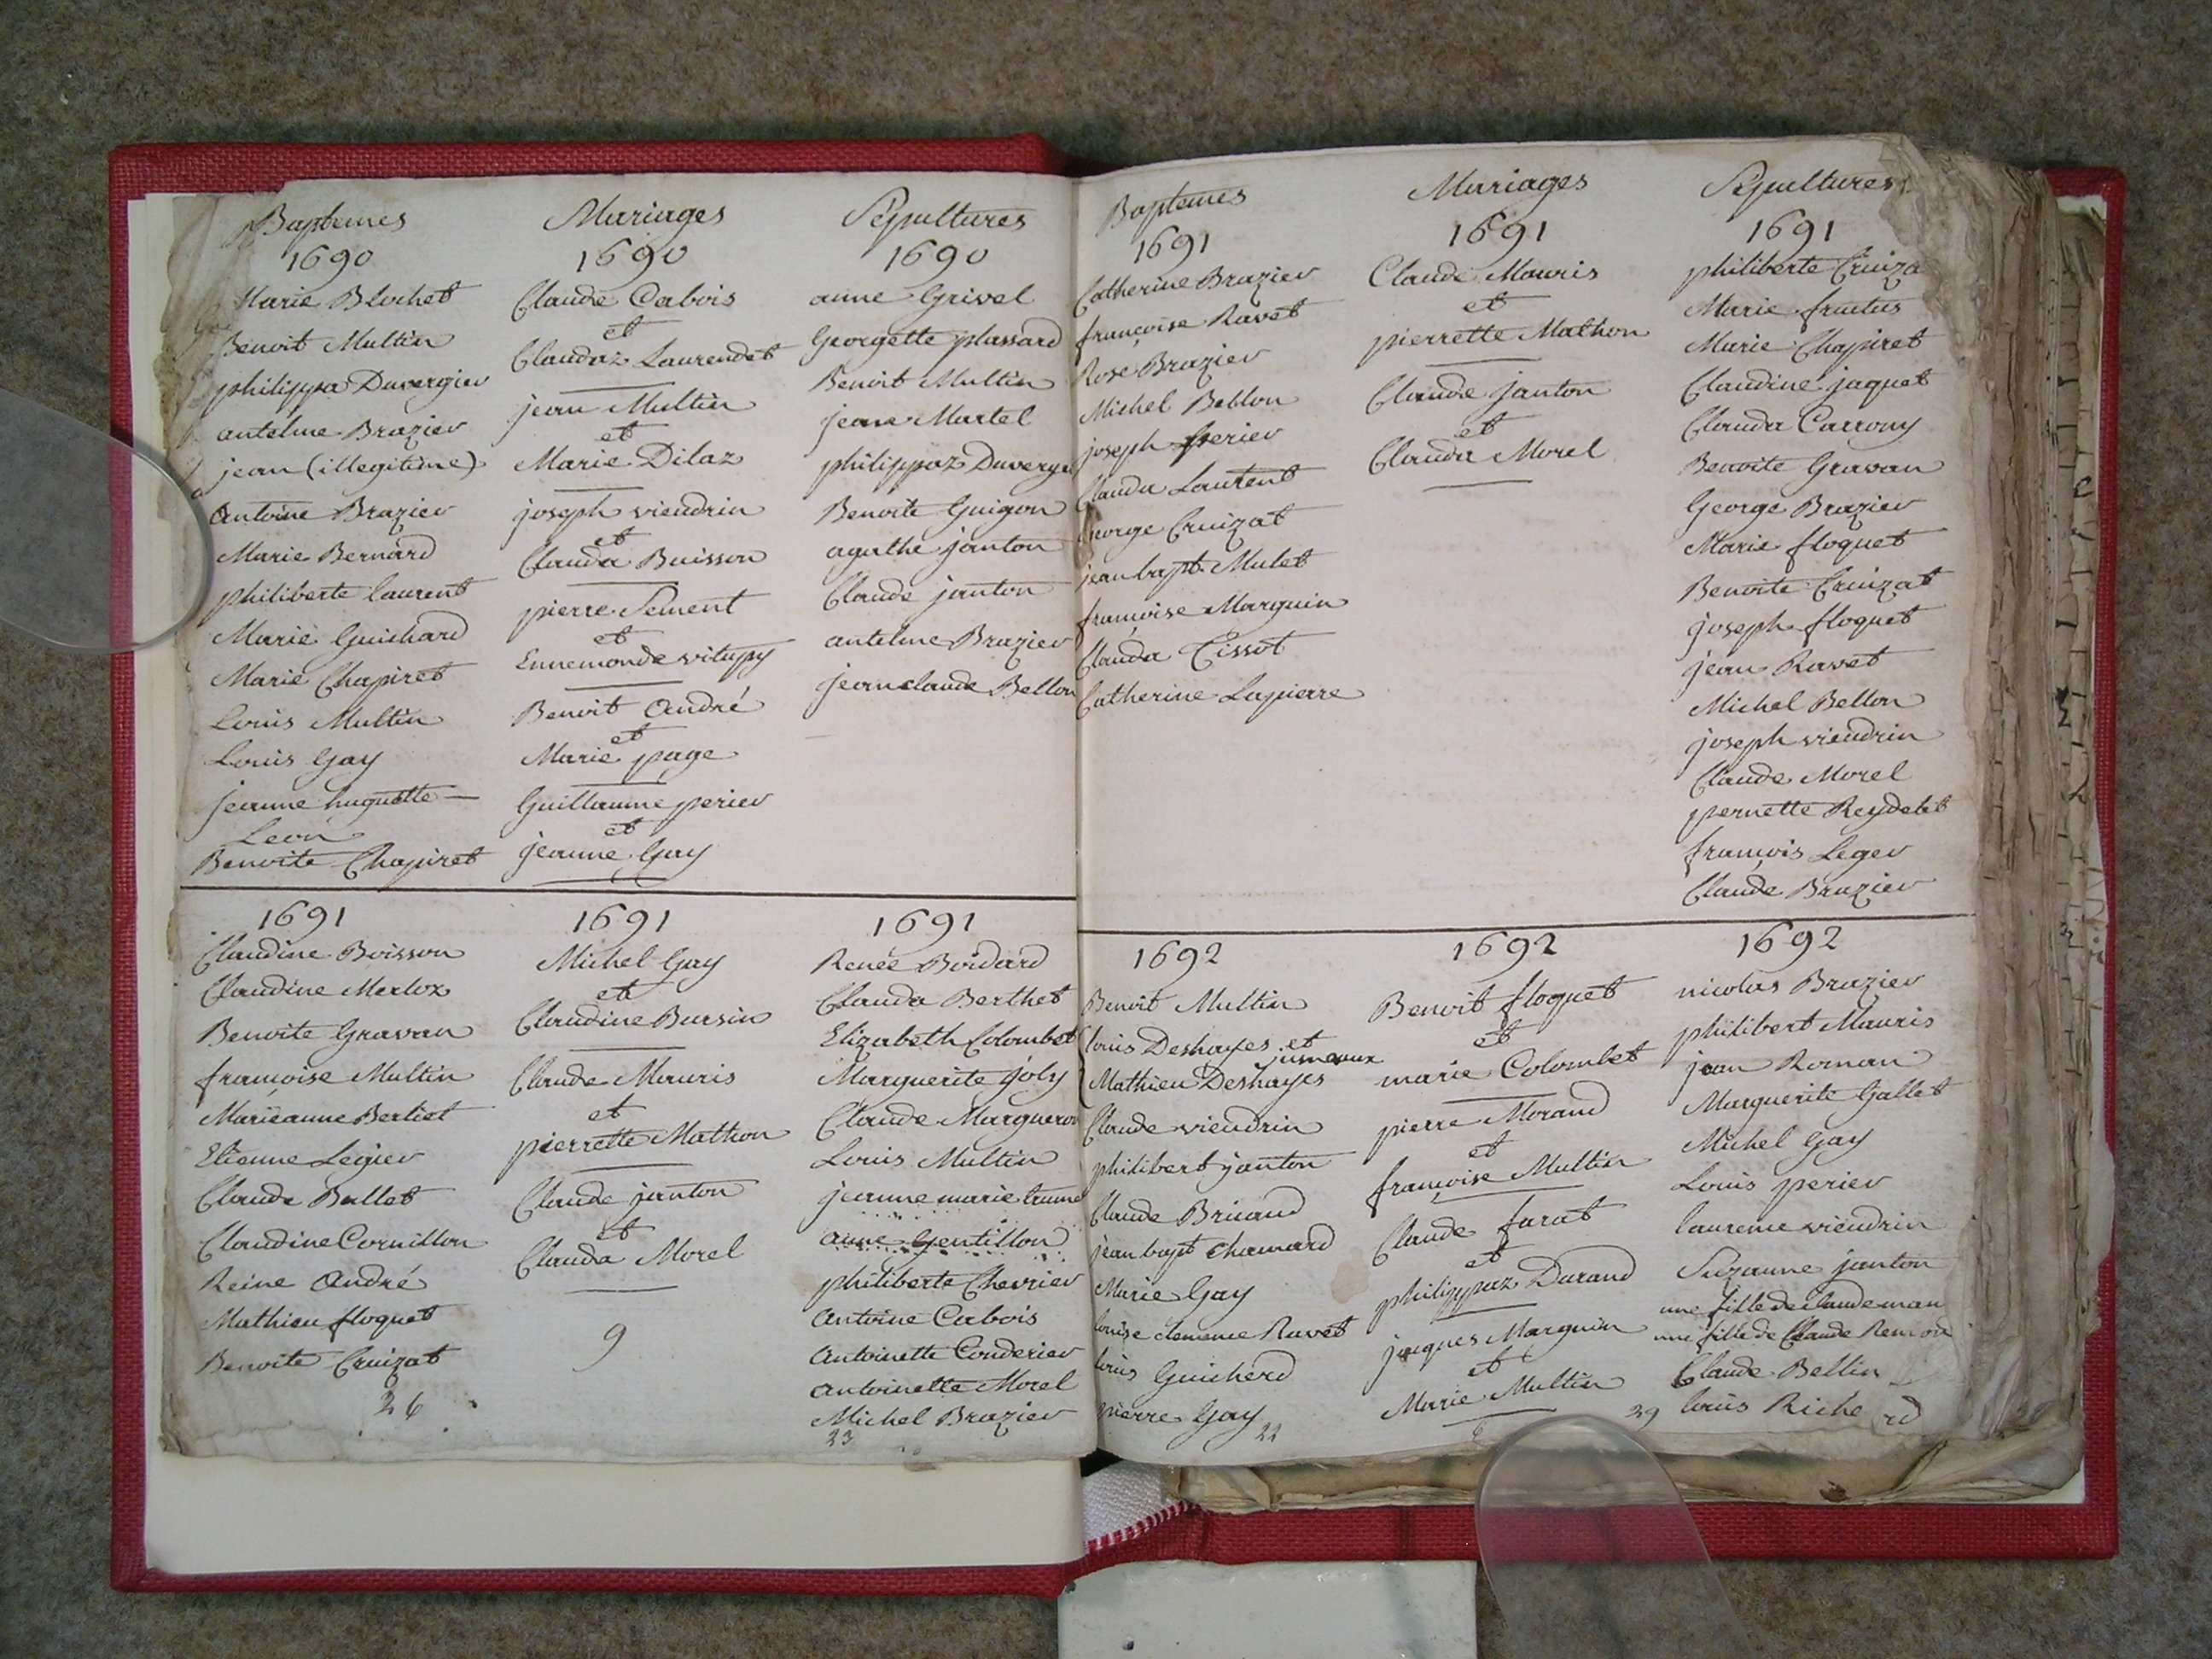 Baptemes
1690
Marie Blochet
Benoit Multin
philippa Duvergier
antelme Brazier
jean (illegitime)
Antoine Brazier
Marie Bernard
philiberte laurent
Marie Guichard
Marie Chapiret
Louis Multin
Louis Gay
jeanne huguette —
Leon
Benoite Chapiret
Mariages
1690
Claude Cabois
et
Claudaz Laurendet
jean Multin
et
Marie Dilaz
joseph vieudrin
et
Clauda Buisson
pierre Sement
et
Ennemonde vitupy
Benoit André
et
Marie page
Guillaume perier
et
jeanne Gay
Sépultures
1690
anne Grivel
Georgette plassard
Benoit Multin
jeane Martel
philippaz Duverg
Benoite Guigon
agathe janton
Claude janton
antelme Brazier
jeanclaude Bellon
1691
Claudine Boisson
Claudine Merloz
Benoite Gravan
françoise Multin
Marieanne Berliet
Etienne Legier
Claude Ballet
Claudine Cornillon
Reine André
Mathieu floquet
Benoite Cruizat
26
1691
Michel Gay
et
Claudine Bursin
Claude Mauris
et
pierrette Mathon
Claude janton
et
Clauda Morel
9
1691
Renée Boidard
Clauda Berthet
Elizabeth Colombet
Marguerite joly
Claude Margueron
Louis Multin
jeanne marie
anne Gentillon
philiberte Chevrier
Antoine Cabois
Antoinette Conderier
Antoinette Morel
Michel Brazier
23
Baptemes
1691
Catherine Brazier
françoise Ravet
Rose Brazier
Michel Bellon
joseph perier
Clauda Lautent
George Cruizat
jean bapt. Mulet
françoise Marguin
Clauda Tissot
Catherine Lapierre
Mariages
1691
Claude Mauris
et
pierrette Mathon
Claude janton
et
Clauda Morel
Sépultures
1691
philiberte Cruiza
Marie fructus
Marie Chapiret
Claudine jaquet
Clauda Carrony
Benoite Gravan
George Brazier
Marie floquet
Benoite Cruizat
joseph floquet
jean Ravet
Michel Bellon
joseph vieudrin
Claude Morel
pernette Reydelet
françois Leger
Claude Brazier
1692
Benoit Multin
louis Deshayes et
jumeaux
Mathieu Deshayes
Claude vieudrin
philibert janton
Claude Briand
jean bapt chamard
Marie Gay
louise clemence Ravet
louis Guicherd
pierre Gay
22
1692
Benoit floquet
et
marie Colombet
pierre Morand
et
françoise Multin
Claude farat
et
philippaz Durand
jaques Marguin
et
Marie Multin
6
1692
nicolas Brazier
philibert Mauris
jean Roman
Marguerite Gallet
Michel Gay
Louis perier
laurence vieudrin
Suzanne janton
une fille de claude man
une fille de Claude Remon
Claude Bellin
29 louis Riche rd